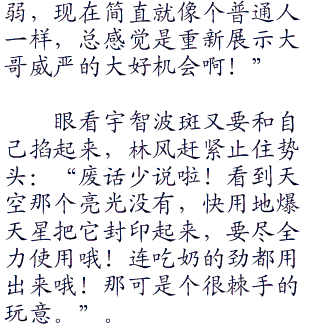 弱，现在简直就像个普通人
一样，总感觉是重新展示大
哥威严的大好机会啊！”
眼看宇智波斑又要和自
己掐起来，林风赶紧止住势
头：“废话少说啦！看到天
空那个亮光没有，快用地爆
天星把它封印起来，要尽全
力使用哦！连吃奶的劲都用
出来哦！那可是个很棘手的
玩意。”。